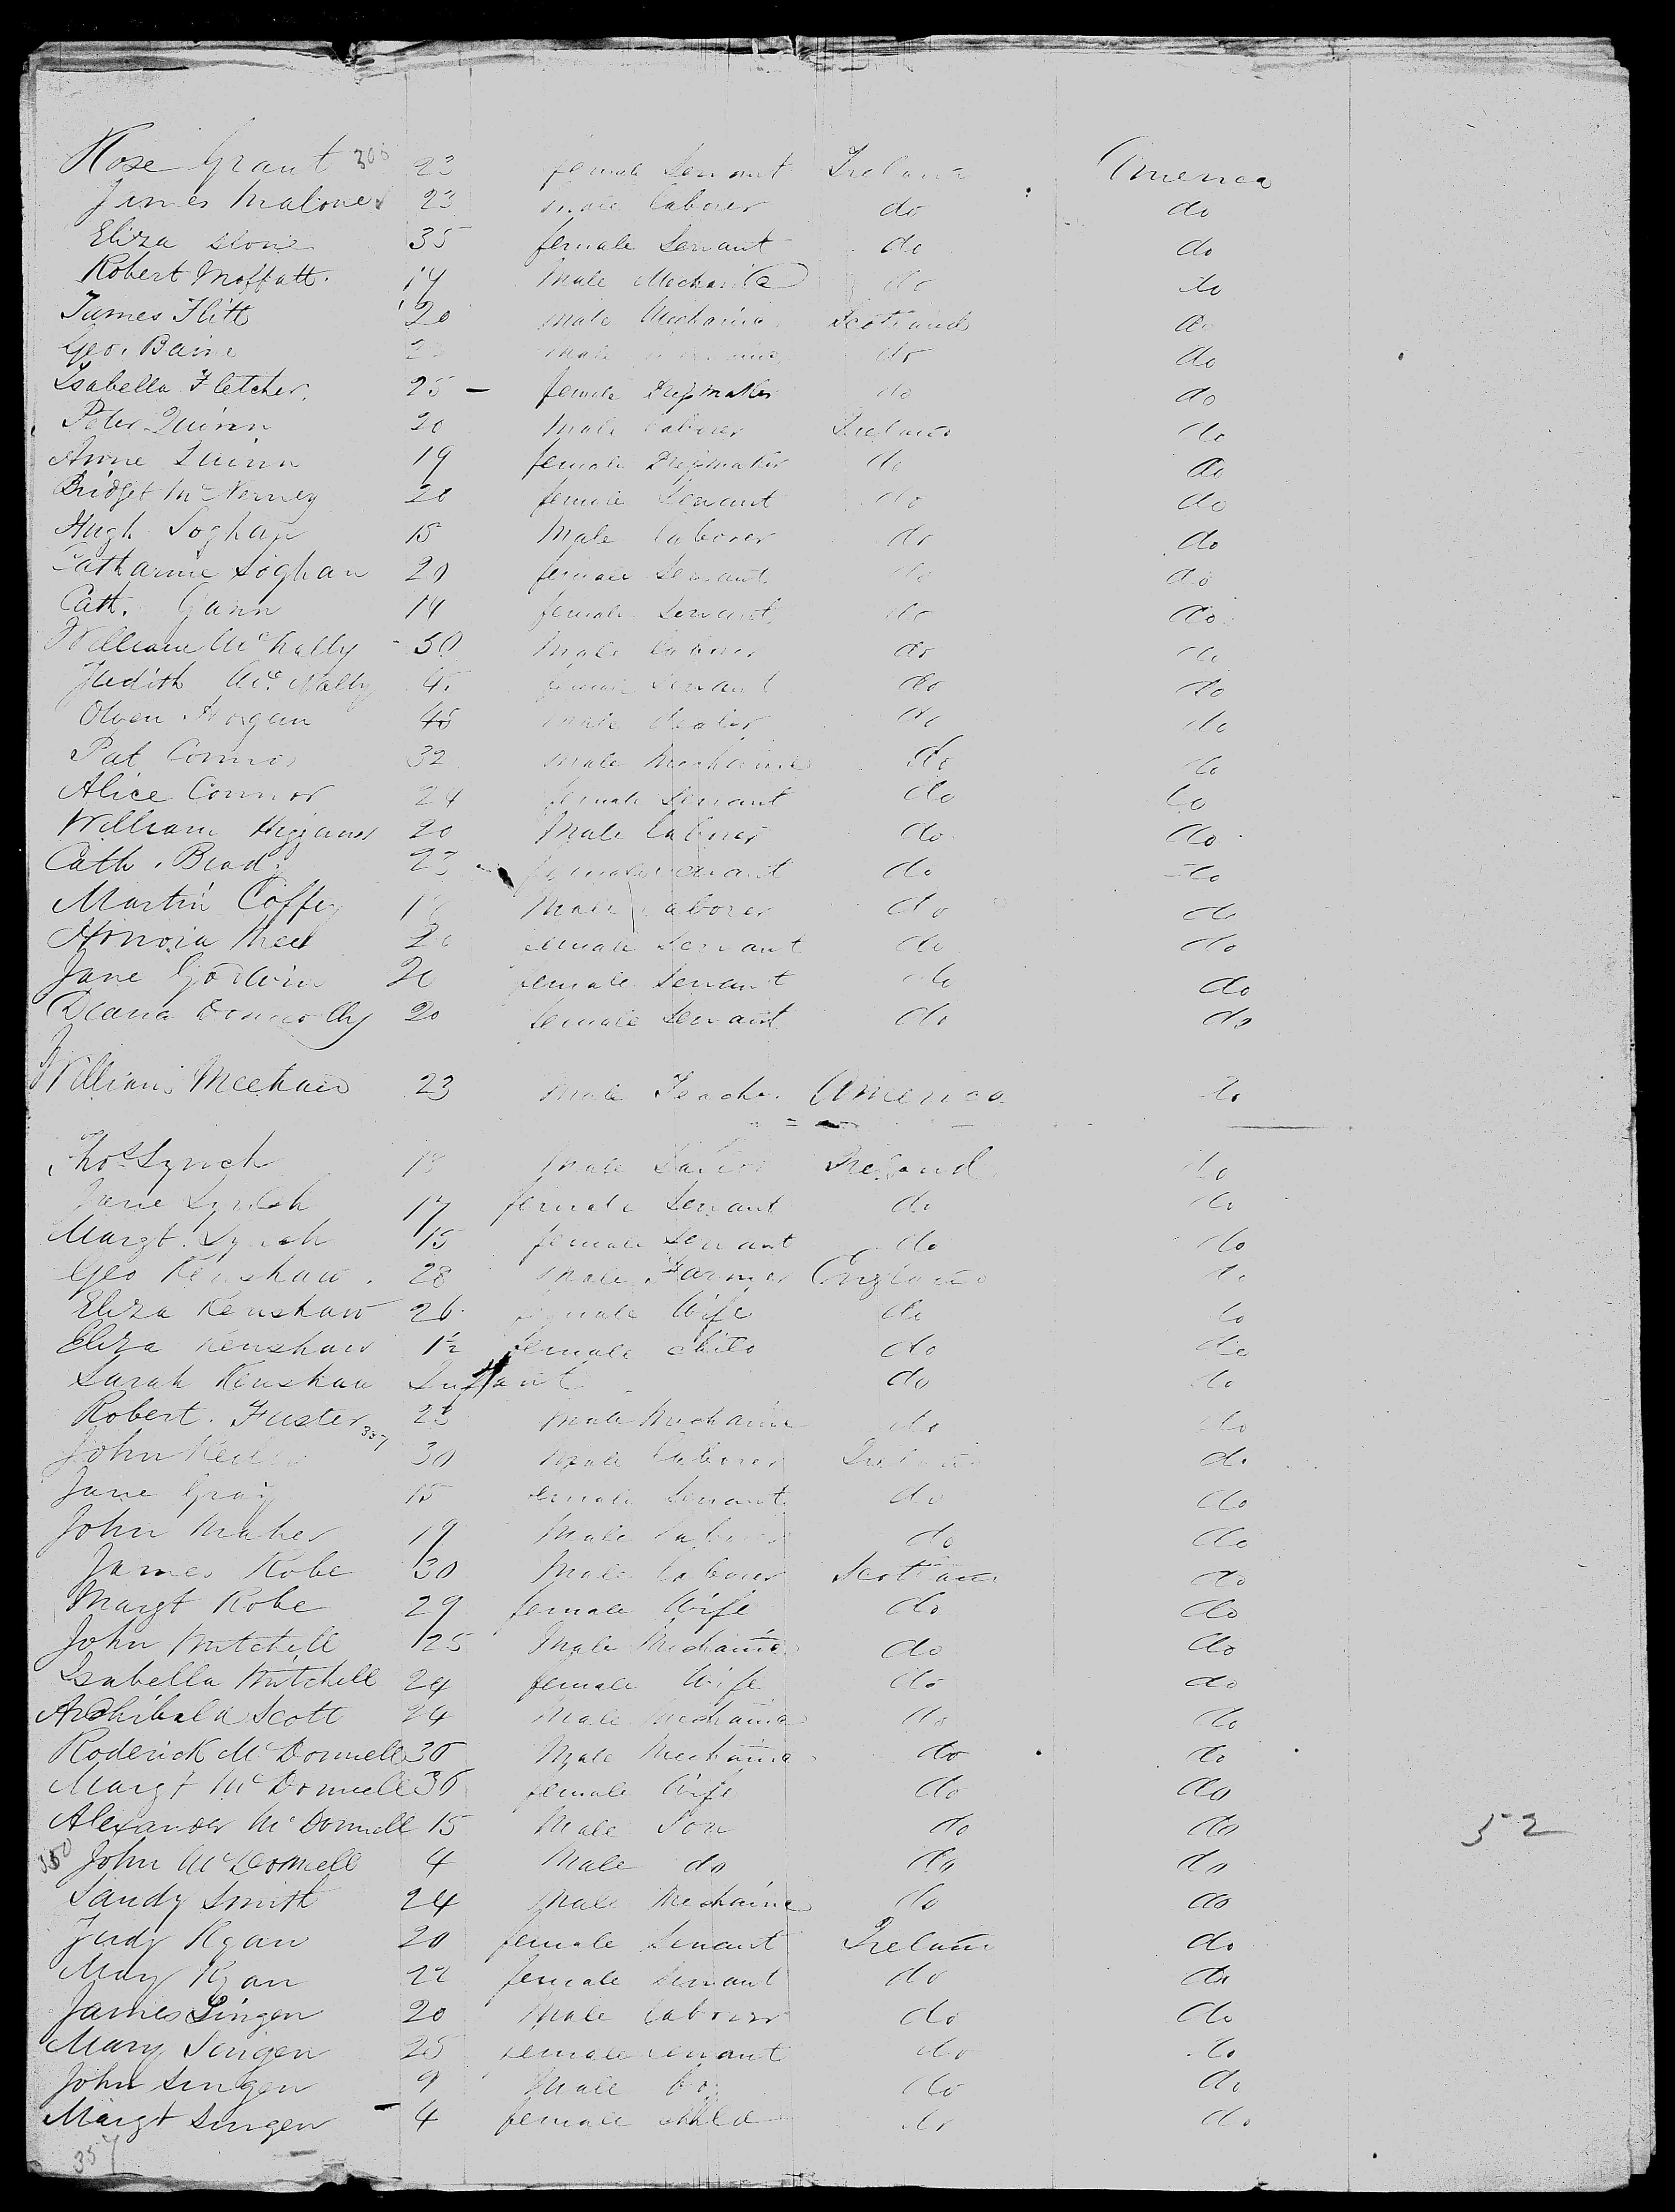 Rose Grant 305 23 female Servant Ireland America
James Malone 23 male laborer do do
Eliza Stone 35 female Servant do do
Robert Moffatt. 14 Male Mechanic do do
James Flitt 20 male Mechanic Scotland do
Geo. Bain male do do
Isabella Fletcher. 25 – female Dressmaker do do
Peter Quinn 20 Male laborer Ireland do
Anne Quinn 19 female Dressmaker do do
Bridget McNerney 20 female Servant do do
Hugh Soghan 15 Male laborer do do
Catharine Soghan 20 female Servant do do
Cath. Gann 14 female Servant do do
William McNally 50 Male laborer do do
Judith McNally female Servant do do
Owen Horgan 45 male dealer do do
Pat Connor 32 male Mechanic do do
Alice Connor 24 female Servant do do
William Higgins 20 Male laborer do do
Cath. Brady 23 female Servant do do
Martin Coffey Male laborer do do
Honora 20 female Servant do do
Jane Godwin 20 female Servant do do
Donnolly 20 female Servant do do
William Meehan 23 Male Teacher America do
Thos Lynch male Ireland do
Jane Lynch 17 female Servant do do
Margt. Lynch 15 female Servant do do
Geo Renshaw. 28 Male Farmer England do
Eliza Renshaw 26 female Wife do do
Eliza Renshaw 1½ female child do do
Sarah Renshaw Infant do do
Robert. Fuster 23 male Mechanic do do
337
John 30 Male laborer Ireland do
Jane Gray 15 female Servant do do
John Maher 19 Male laborer do do
James Robe 30 Male laborer Scotland do
Margt Robe 29 female Wife do do
John Mitchell 25 Male Mechanic do do
Isabella Mitchell 24 female Wife do do
Archibald Scott 24 Male Mechanic do do
Roderick McDonnell 36 Male Mechanic do do
Margt McDonnell 36 female Wife do do
Alexander McDonnell 15 Male Son do do 52
350 John McDonnell 4 Male do do do
Sandy Smith 24 Male Mechanic do do
Judy Ryan 20 female Servant Ireland do
Mary Ryan 22 female Servant do do
James Singen 20 Male laborer do do
Mary Singen 25 female Servant do do
John Singen 9 Male boy do do
Margt Singen 4 female child do do
357